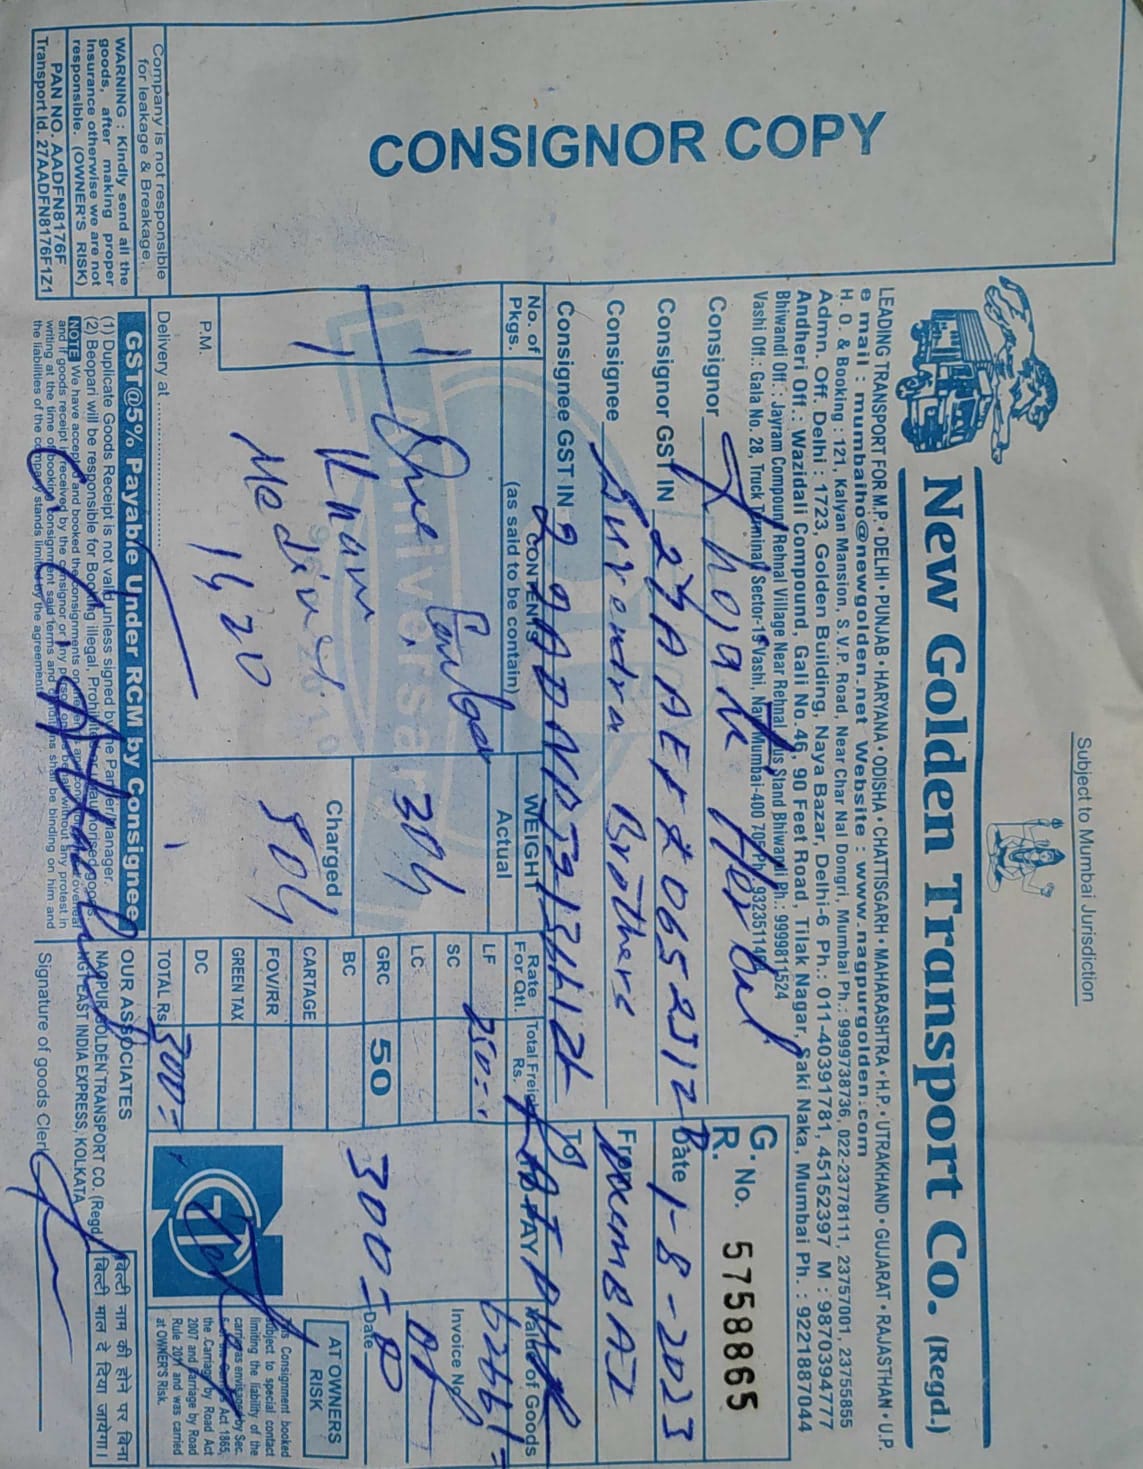 Subject to Mumbai Jurisdiction
New Golden Transport Co. (Regd.)
LEADING TRANSPORT FOR M.P. • DELHI • PUNJAB • HARYANA • ODISHA • CHATTISGARH • MAHARASHTRA • H.P. • UTRAKHAND • GUJARAT • RAJASTHAN • U.P.
e mail : mumbaiho@newgolden.net Website : www.nagpurgolden.com
H. O. & Booking : 121, Kalyan Mansion, S.V.P. Road, Near Char Nal Dongri, Mumbai Ph.: 9999738736, 022-23778111, 23757001, 23755855
Admn. Off. Delhi : 1723, Golden Building, Naya Bazar, Delhi-6 Ph.: 011-40391781, 45152397 M : 9870394777
Andheri Off.: Wazidali Compound, Gali No. 46, 90 Feet Road, Tilak Nagar, Saki Naka, Mumbai Ph. : 9221887044
Bhiwandi Off.: Jayram Compound Rehnal Village Near Rehnal Bus Stand Bhiwandi Ph.: 9999811524
Vashi Off.: Gala No. 28, Truck Terminal Sector-19 Vashi, Navi Mumbai-400 705 Ph.:
CONSIGNOR COPY
G. R. No. 5758865
Consignor
Consignor GST IN
Date 1-8-2023
Consignee Surendra Brothers
From MUMBAI
Consignee GST IN
To
No. of Pkgs.
CONTENTS
(as said to be contain)
WEIGHT
Actual
Rate For Qtl.
Total Freight Rs.
PAY
Value of Goods
1
One
LF 250=
SC
Invoice No.
LC
GRC 50
300=
Charged
BC
Date
CARTAGE
Medicine
FOV/RR
GREEN TAX
P.M.
DC
Delivery at
TOTAL Rs. 300=
AT OWNERS RISK
This Consignment booked
subject to special contact
limiting the liability of the
carrier as envisaged by Sec.
Act 1865,
the Carriage by Road Act
2007 and Carriage by Road
Rule 2011 and was carried
at OWNER'S Risk.
Company is not responsible
for leakage & Breakage.
WARNING : Kindly send all the
goods, after making proper
Insurance otherwise we are not
responsible. (OWNER'S RISK)
PAN NO. AADFN8176F
Transport Id. 27AADFN8176F1Z1
GST@5% Payable Under RCM by Consignee
(1) Duplicate Goods Receipt is not valid unless signed by the Partner/Manager.
(2) Beopari will be responsible for Booking illegal,
NOTE We have accepted and booked the consignments
and if goods receipt is received by the consignor or any without any protest in
writing at the time of booking consignment said terms and shall be binding on him and
the liabilities of the company stands limited by the agreement.
OUR ASSOCIATES
NAGPUR GOLDEN TRANSPORT CO. (Regd.)
EAST INDIA EXPRESS, KOLKATA
Signature of goods Clerk
बिल्टी नाम की होने पर बिना
बिल्टी माल दे दिया जायेगा।